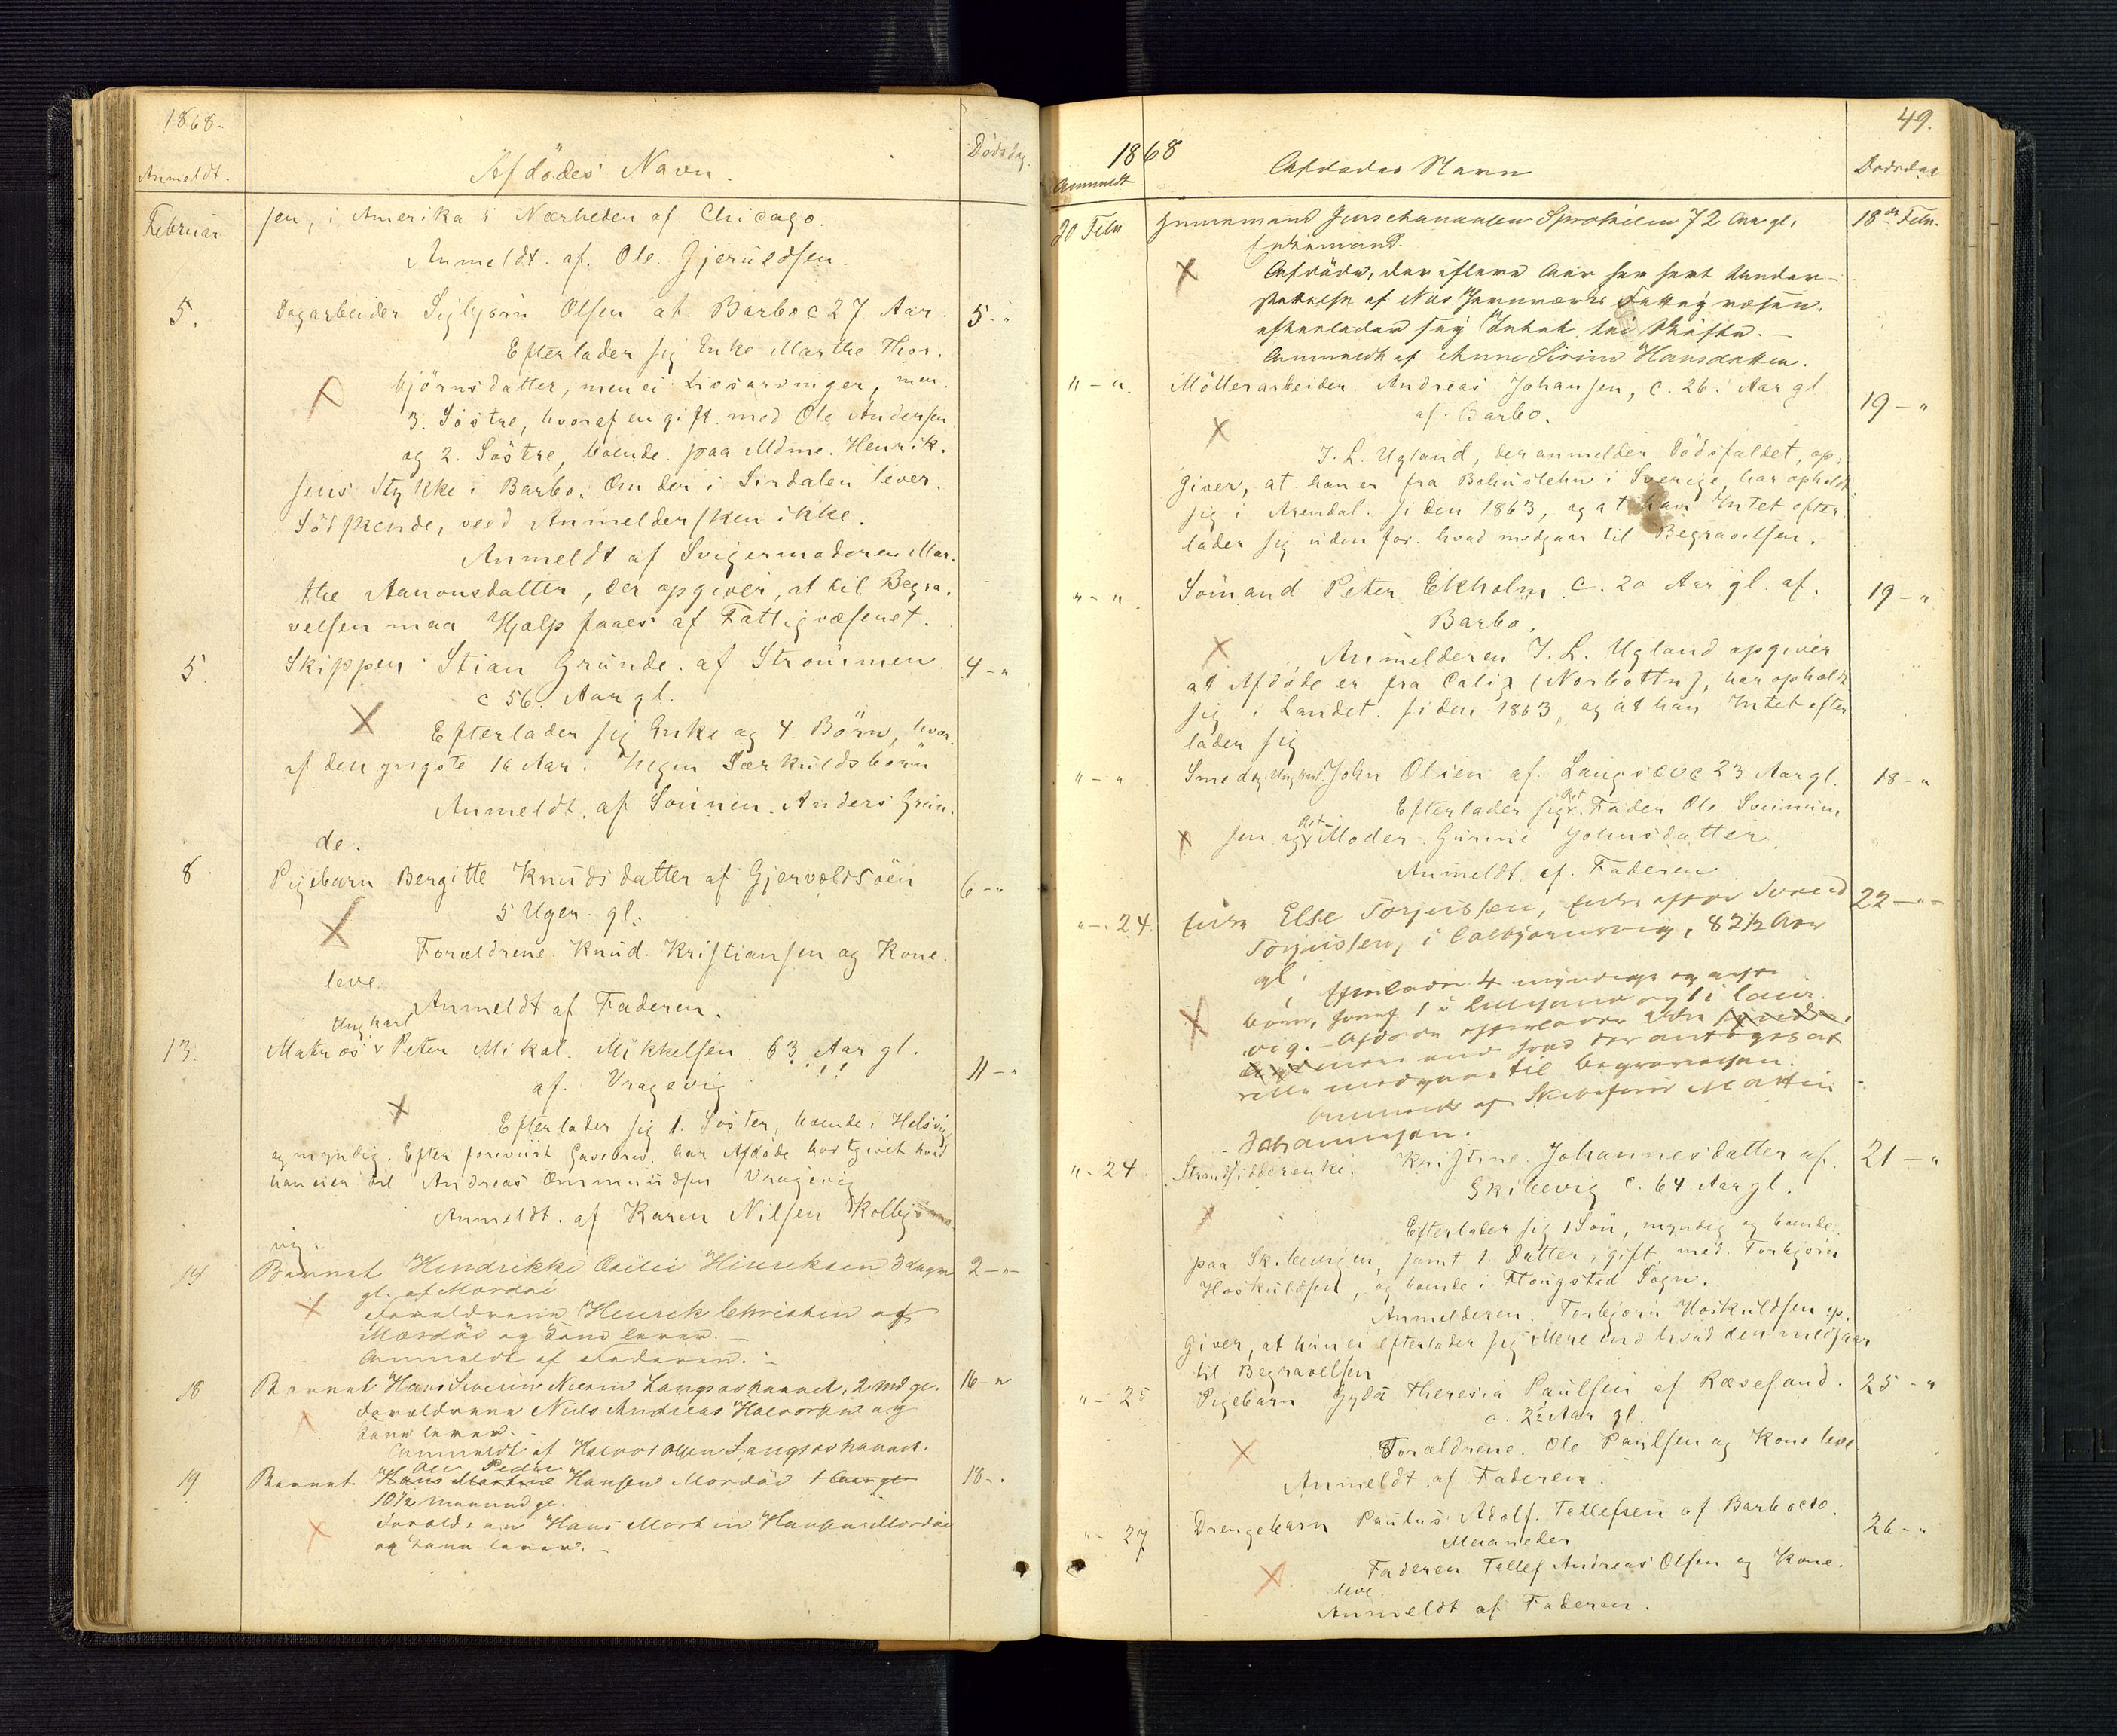 1868.
Anmeldt.
Afdödes Navn.
Dödsdag.
Februar
sen, i Amerika i Nærheden af Chicago.
Anmeldt af Ole Gjeruldsen.
5.
Dagarbeider Sigbjörn Olsen af Barbo c 27 Aar.
5 - "
Efterlader sig Enke Marthe Thor-
björnsdatter, men ei Livsarvinger, men
3 Söstre, hvoraf en gift med Ole Andersen
og 2 Söstre, boende paa Mdme. Henrik-
sens Stykke i Barbo. Om der i Sirdalen lever
Södskende, veed Anmeldersken ikke.
Anmeldt af Svigermoderen Mar-
the Aanonsdatter, der opgiver, at til Begra-
velsen maa Hjælp faaes af Fattigvæsenet.
5.
Skipper Stian Grunde af Strömmen
4 - "
c 56 Aar gl.
Efterlader sig Enke og 4 Börn, hvor-
af den yngste 16 Aar. Ingen Særkuldsbörn
Anmeldt af Sönnen Anders Grun-
de.
8
Pigebarn Bergitte Knudsdatter af Gjervoldsöen
6 - "
5 Uger gl.
Forældrene Knud Kristiansen og Kone
leve
Anmeldt af Faderen.
Ungkarl
13.
Matros Peter Mikal Mikkelsen 63 Aar gl.
11 - "
af Vragevig
Efterlader sig 1 Söster, boende i Helsvig
og myndig. Efter foreviist Gavebrev har Afdöde bortgivet hvad
han eier til Andreas Ommundsen Vragevig
Anmeldt af Karen Nilsen Kolbjörns-
vig.
14
Barnet Hendrikke Cecilie Henriksen 3 dage
2 - "
gl. af Merdöe
Forældrene Henrik Christen af
Merdöe og Kone lever.
Anmeldt af Faderen.
18
Barnet Hans Severin Langsævhavnet, 2 Md gl.
16 - "
Forældrene Niels Andreas Halvorsen og
Kone lever.
Anmeldt af Halvor Olsen Langsævhavnet.
Ole Peder
19
Barnet Hans Martin Hansen Merdöe
18 - "
10½ Maaned gl.
Forældrene Hans Martin Hansen Merdöe
og Kone lever.
49.
1868
Anmeldt
Afdödes Navn
Dödsdag
20 Febr
Jens 72 Aar gl.
18de Febr.
Enkemand.
Afdöde, der i flere Aar har havt Under-
støttelse af Næs Jernværks Fattigvæsen,
efterlader sig Intet til Skifte.
Anmeldt af Anne Sirine Hansdatter.
" - "
Möllerarbeider Andreas Johansen, c. 26 Aar gl
19 - "
af Barbo.
J. L. Ugland, der anmelder Dödsfaldet, op-
giver, at han er fra Bohuslehn i Sverige, har opholdt
sig i Arendal siden 1863, og at han Intet efter-
lader sig uden for hvad medgaar til Begravelsen.
" - "
Sömand Peter Ekholm c. 20 Aar gl. af
19 - "
Barbo.
Anmelderen J. L. Ugland opgiver
at Afdöde er fra Calix (Norbottn), har opholdt
sig i Landet siden 1863, og at han Intet efter
lader sig
" - "
Smed og Ungkarl John Olsen af Langsæv c 23 Aar gl.
18 - "
Efterlader sig Fader Ole Sveinun-
sen og Moder Gunnie Johnsdatter.
Anmeldt af Faderen
" - 24.
Enke Else Torjussen, Enke efter Svend
22 - "
Torjussen, i Colbjörnsvig, 82½ Aar
gl.
Efterlader 4 myndige og gifte
Börn, hvoraf 1 i
vig. - Afdöde efterlader sig
mere end hvad der antages at
ville medgaae til Begravelsen.
Anmeldt af Skibsförer Martin
Johannesen.
" - 24
Strandsidderenke Kristine Johannesdatter af
21 - "
Skilevig c. 64 Aar gl.
Efterlader sig 1 Sön, myndig og boende
paa Skilevigen, samt 1 Datter, gift med Torbjörn
Hoskuldsen, og boende i Flougstad Sogn.
Anmelderen Torbjörn Hoskuldsen op-
giver, at hun ei efterlader sig Mere end hvad der medgaar
til Begravelsen
" - 25
Pigebarn Gyda Theresia Paulsen af Ræsesand.
25 - "
c. 2½ Aar gl.
Forældrene Ole Paulsen og Kone leve
Anmeldt af Faderen.
" - 27
Drengebarn Paulus Adolf Tellefsen af Barbo c 10
26 - "
Maaneder
Faderen Tellef Andreas Olsen og Kone
leve
Anmeldt af Faderen.